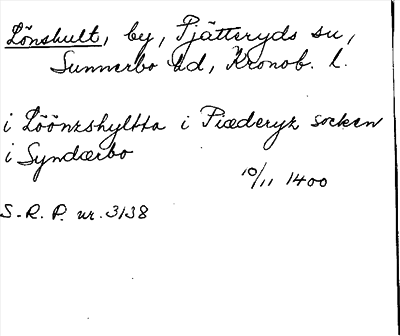 Lönshult, by, Pjätteryds sn,
Sunnerbo hd, Kronob. l.
i Löönzhyltta i Piæderyz socken
i Syndærbo
10/11 1400
S.R.P. nr. 3138